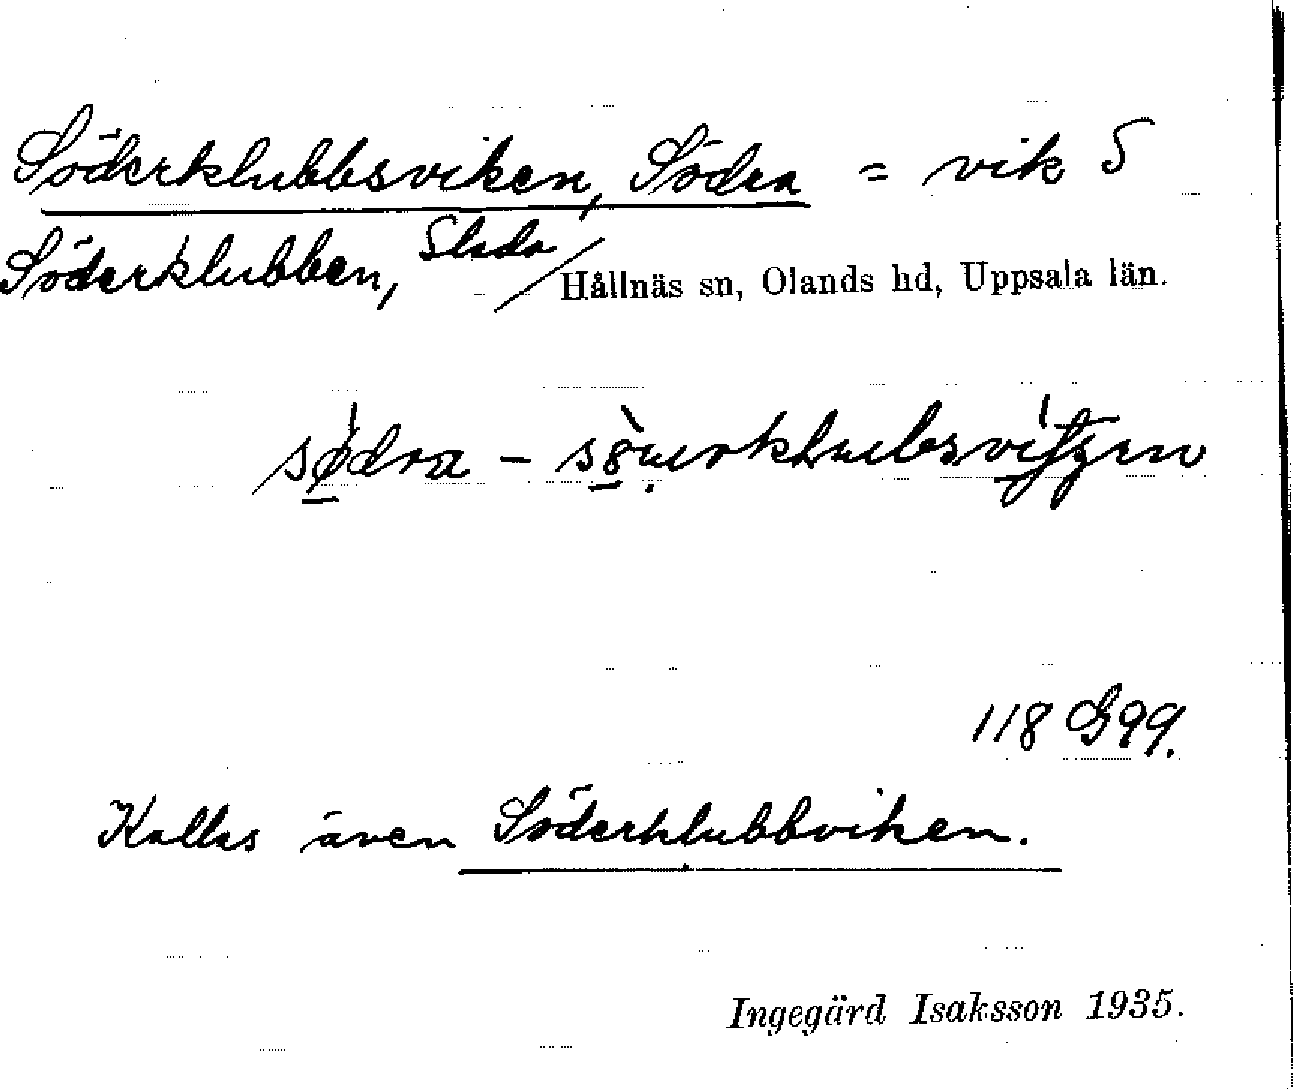 Söderklubbsviken, Södra = vik S
Söderklubben, Slada
Hållnäs sn, Olands hd, Uppsala län.
södra -
118 G99.
Kallas även Söderklubbviken.
Ingegärd Isaksson 1935.